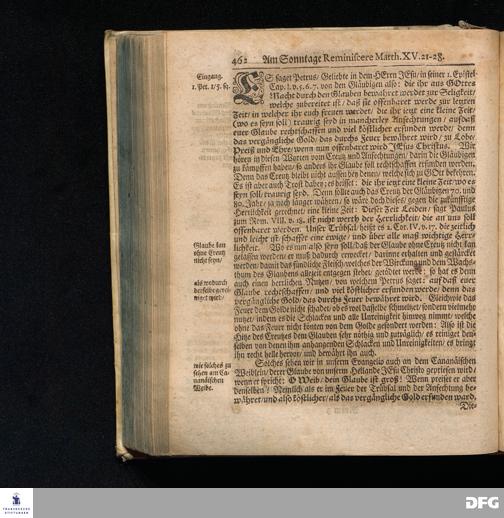 462 Am Sonntage Reminiscere Matth. XV. 21-28.
Eingang.
1. Pet. 1/5. 6.
ES saget Petrus/ Geliebte in dem HErrn JEsu/ in seiner 1. Epistel
Cap. I. v. 5. 6. 7. von den Gläubigen also: die ihr aus GOttes
Macht durch den Glauben bewahret werdet zur Seligkeit/
welche zubereitet ist/ daß sie offenbaret werde zur letzten
Zeit/ in welcher ihr euch freuen werdet/ die ihr jetzt eine kleine Zeit/
(wo es seyn soll) traurig seyd in mancherley Anfechtungen/ auf daß
euer Glaube rechtschaffen und viel köstlicher erfunden werde/ denn
das vergängliche Gold/ das durchs Feuer bewähret wird/ zu Lobe/
Preiß und Ehre/ wenn nun offenbaret wird JEsus Christus. Wir
hören in diesen Worten vom Creutz und Anfechtungen/ darin die Gläubigen
zu kämpffen haben/ so anders ihr Glaube soll rechtschaffen erfunden werden.
Denn das Creutz bleibt nicht aussen bey denen/ welche sich zu GOtt bekehren.
Es ist aber auch Trost dabey; es heisset: die ihr jetzt eine kleine Zeit/ wo es
seyn soll/ traurig seyd. Denn sollte auch das Creutz der Gläubigen 70. und
80. Jahr/ ja noch länger währen/ so wäre doch dieses/ gegen die zukünfftige
Herrlichkeit gerechnet/ eine kleine Zeit: Dieser Zeit Leiden/ sagt Paulus
zum Röm. VIII. v. 18. ist nicht werth der Herrlichkeit/ die an uns soll
offenbaret werden. Unser Trübsal/ heißt es 2. Cor. IV. v. 17. die zeitlich
und leicht ist/ schaffet eine ewige/ und über alle maß wichtige Herr-
Glaube kan
ohne Creutz
nicht seyn/
lichkeit. Wo es nun also seyn soll/ daß der Glaube ohne Creutz nicht kan
gelassen werden/ er muß dadurch erwecket/ darinne erhalten und gestärcket
werden/ damit das sündliche Fleisch/ welches der Wirckung und dem Wachs-
thum des Glaubens allezeit entgegen stehet/ getödtet werde: so hat es denn
als wodurch
derselbe gerei-
niget wird/
auch einen herrlichen Nutzen/ von welchem Petrus saget: auf daß euer
Glaube rechtschaffen/ und viel köstlicher erfunden werde/ denn das
vergängliche Gold/ das durchs Feuer bewähret wird. Gleichwie das
Feuer dem Golde nicht schadet/ ob es wol dasselbe schmeltzet/ sondern vielmehr
nutzet/ indem es die Schlacken und alle Unreinigkeit hinweg nimmt/ welche
ohne das Feuer nicht könten von dem Golde gesondert werden: Also ist die
Hitze des Creutzes dem Glauben sehr nöthig und zuträglich/ es reiniget den-
selben von denen ihm anhangenden Schlacken und Unreinigkeiten/ es bringt
ihn recht helle hervor/ und bewährt ihn auch.
wie solches zu
sehen am Ca-
nanäischen
Weibe.
Solches sehen wir in unserm Evangelio auch an dem Cananäischen
Weiblein/ derer Glaube von unserm Heilande JEsu Christo gepriesen wird/
wenn er spricht: O Weib/ dein Glaube ist groß! Wenn preiset er aber
denselben? Nemlich/ als er im Feuer der Trübsal und der Anfechtung be-
währet/ und also köstlicher/ als das vergängliche Gold erfunden ward.
Die-
FRANCKESCHE
STIFTUNGEN
DFG